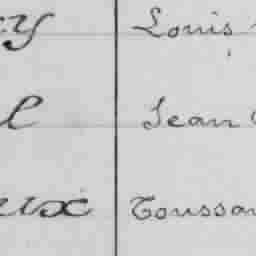 y Louis
l Jean
ux Toussa